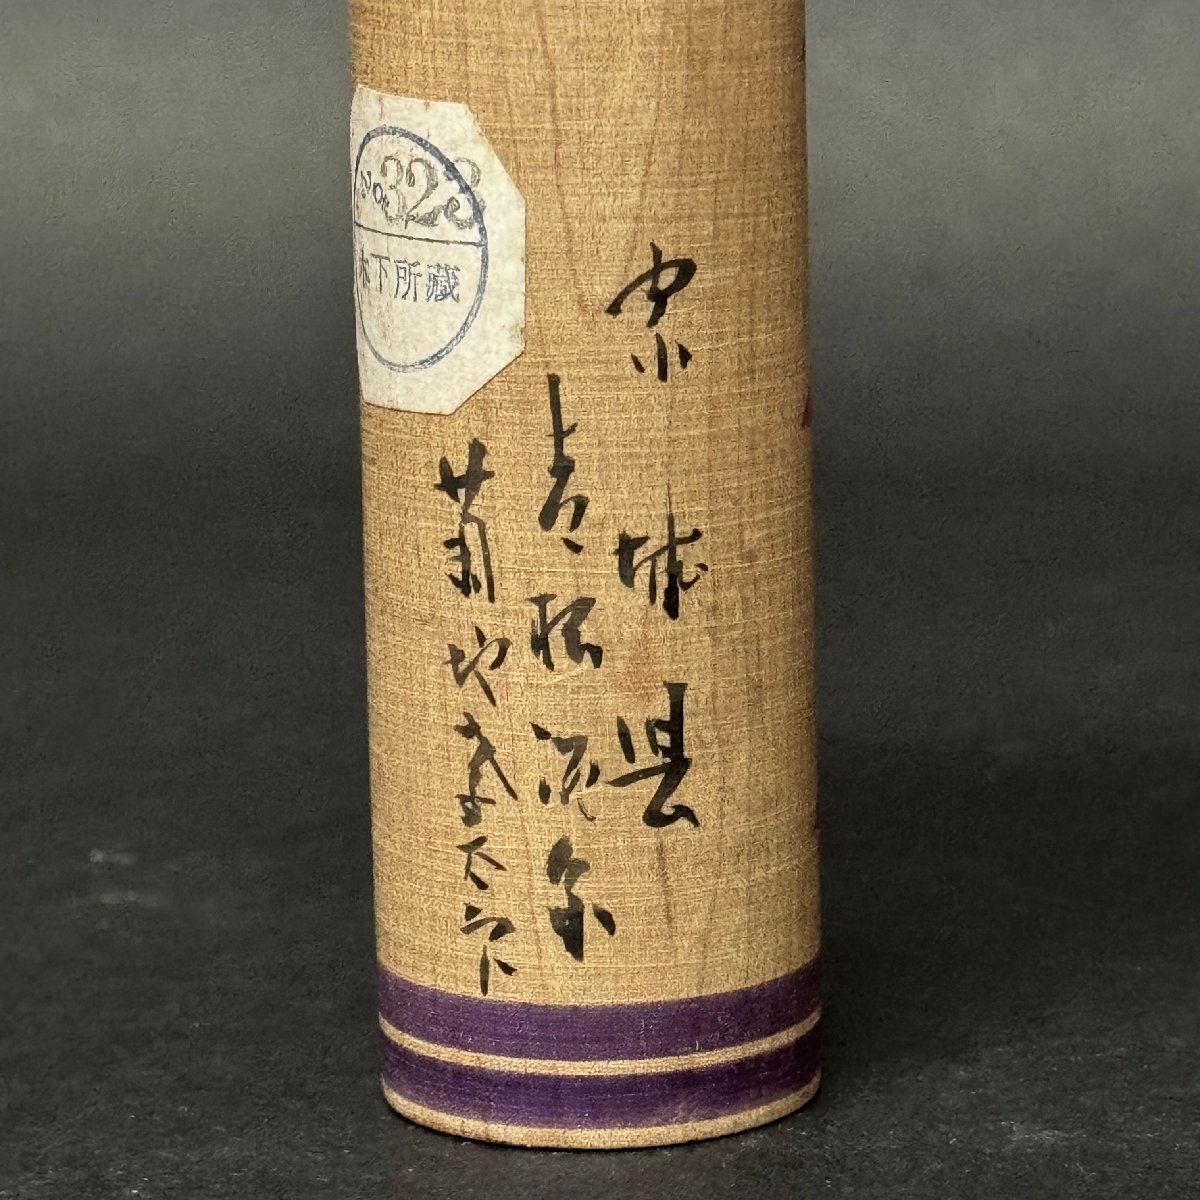 No. 323
木下所蔵
宮城県
青根温泉
菊地孝太郎